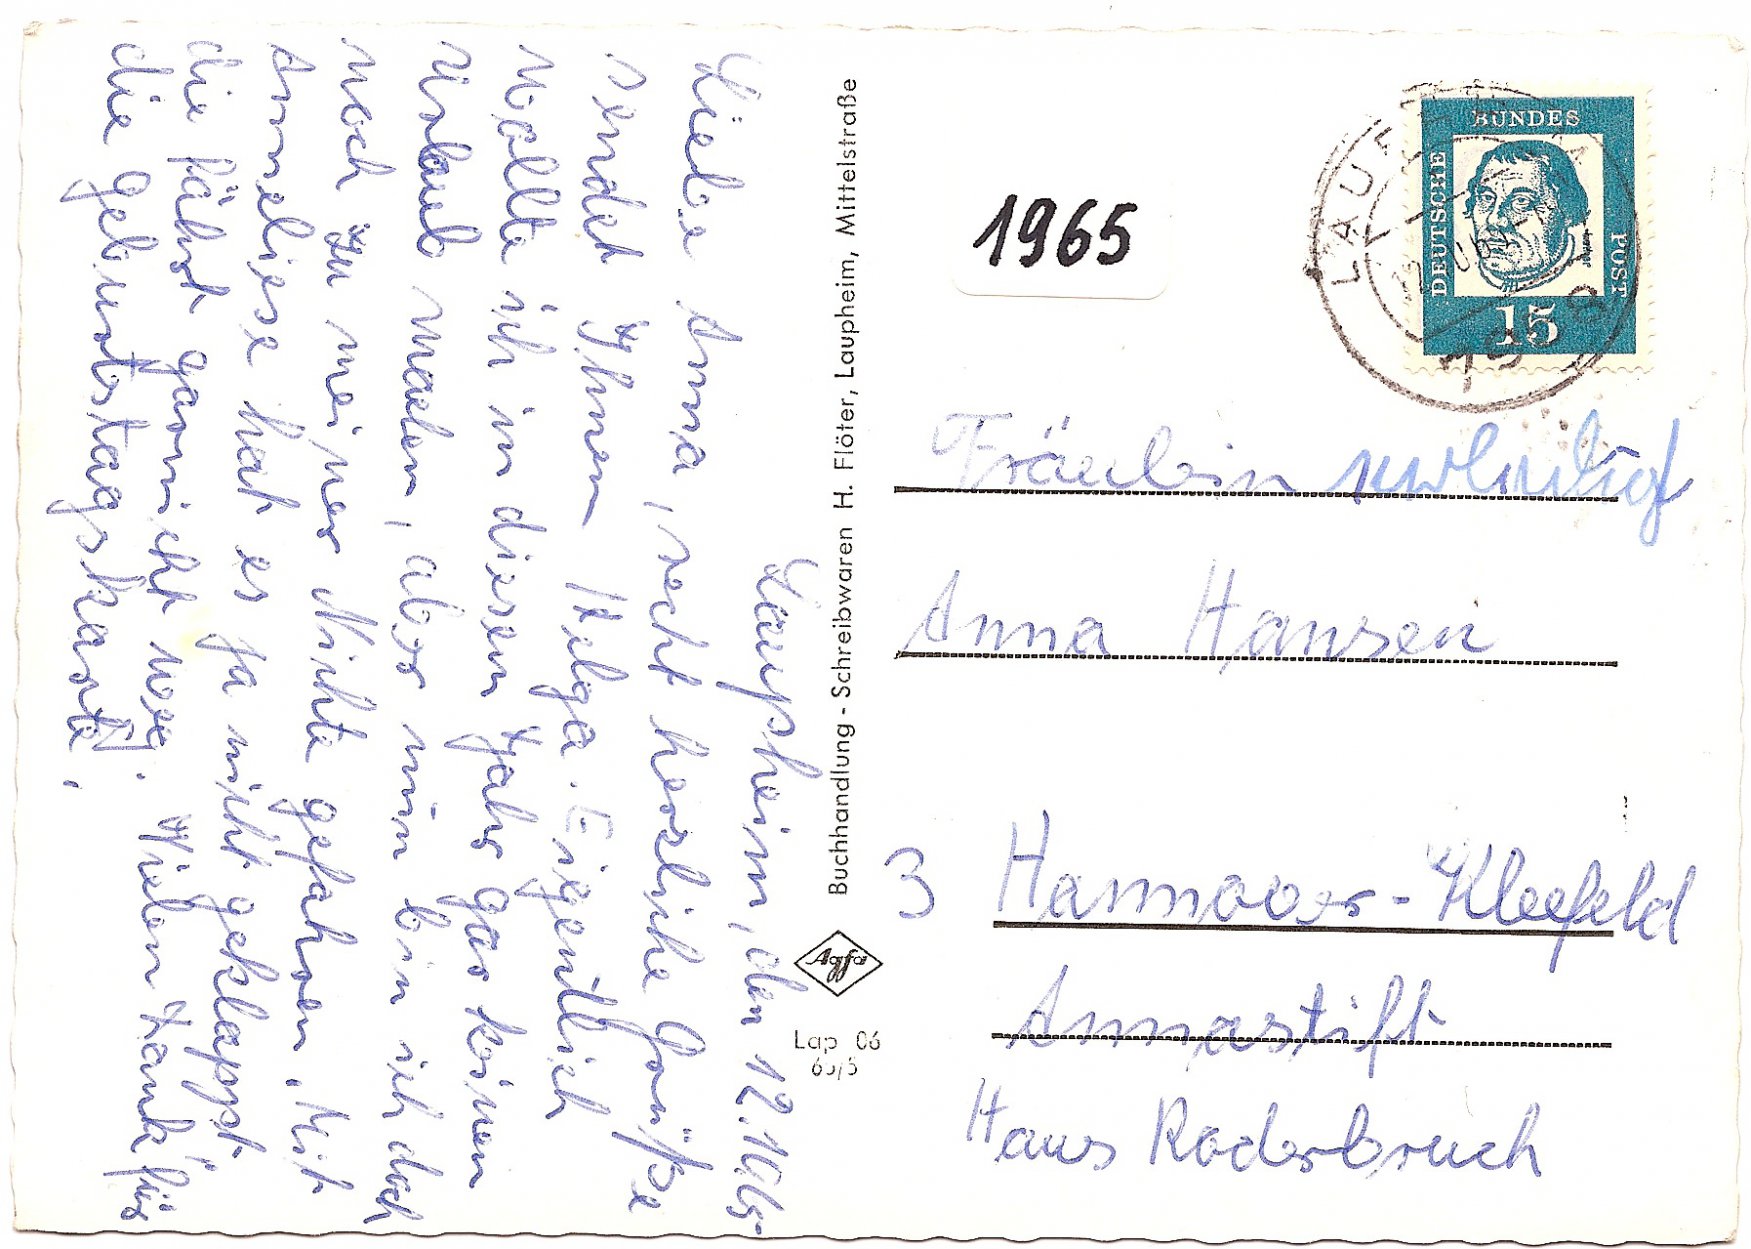 Laupheim, den 12.10.65
Liebe Anna, recht herzliche Grüße
sendet Ihnen Helga. Eigentlich
wollte ich in diesem Jahr gar keinen
Urlaub machen, aber nun bin ich doch
noch zu meiner Nichte gefahren. Mit
Anneliese hat es ja nicht geklappt,
die fährt garnicht weg. Vielen Dank für
die Geburtstagskarte.
Buchhandlung - Schreibwaren H. Flöter, Laupheim, Mittelstraße
Agfa
Lap 06
65/5
1965
DEUTSCHE BUNDES POST
Luther
15
LAUPHEIM
Fräulein
Anna Hansen
3 Hannover-Kleefeld
Annastift
Haus Roderbruch